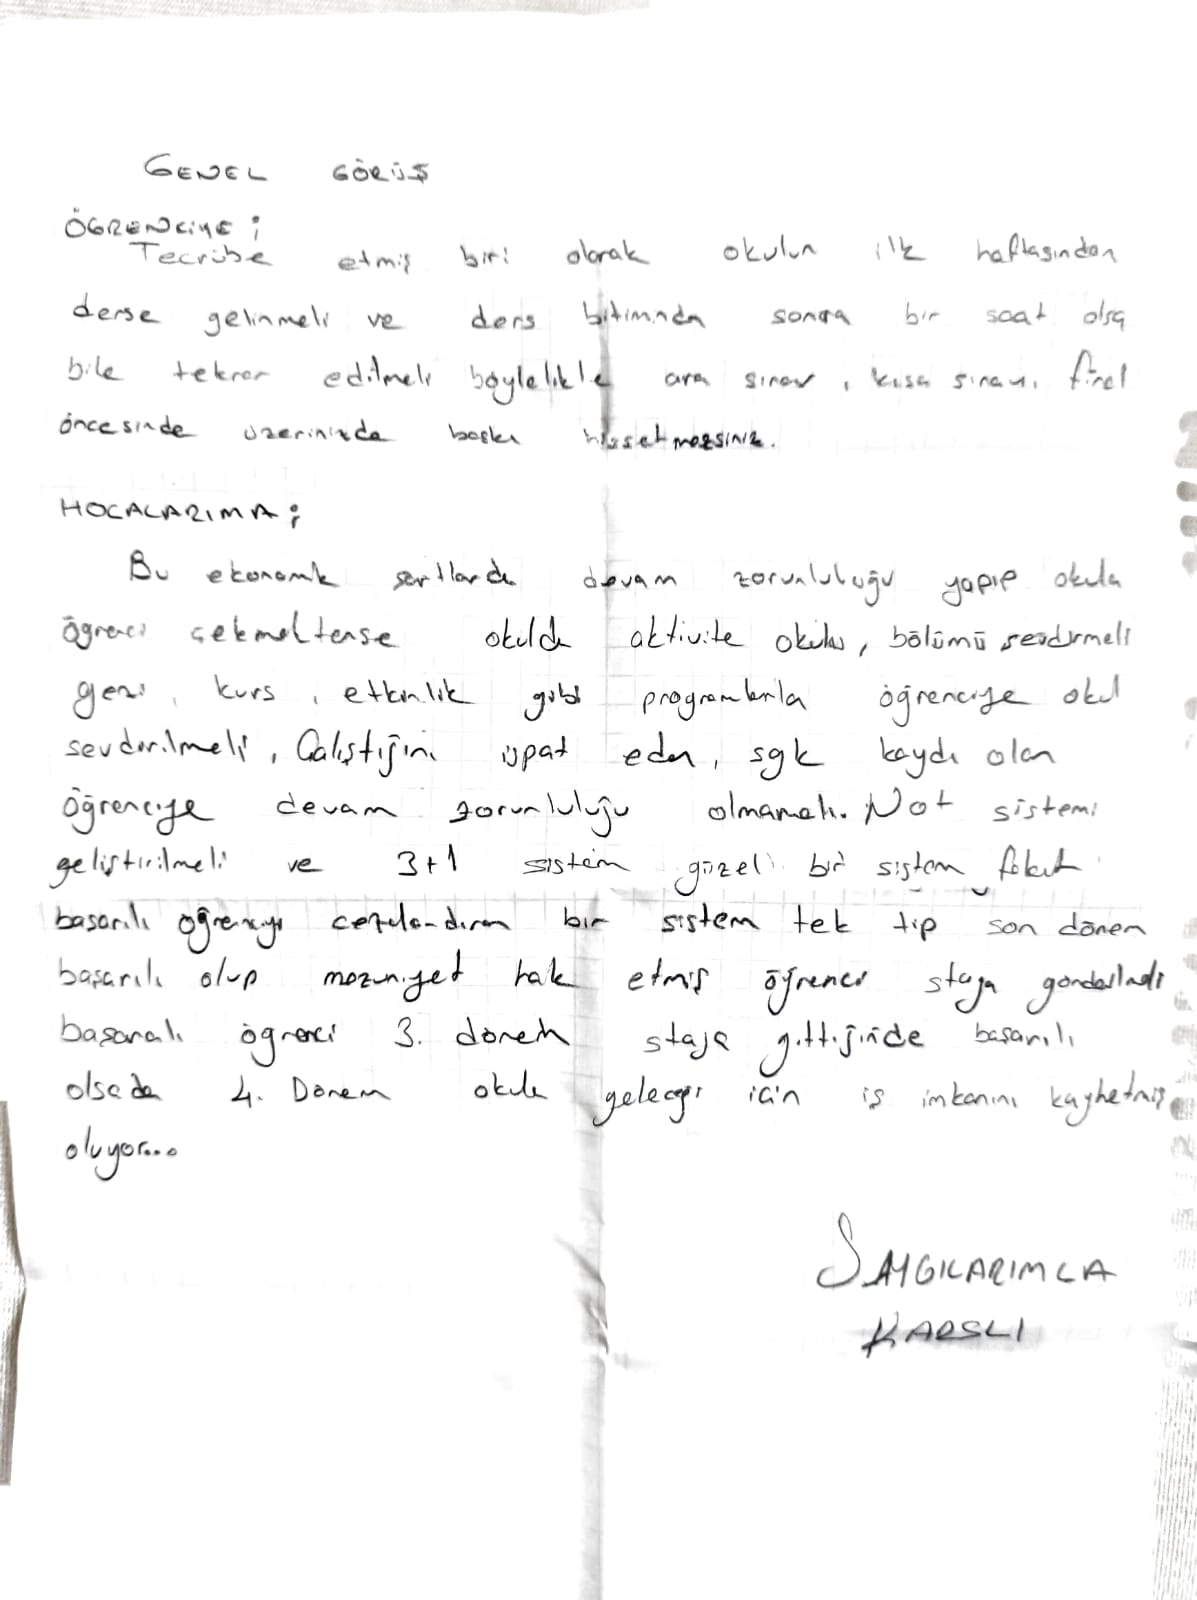 GENEL GÖRÜŞ
ÖĞRENCİYE ;
Tecrübe etmiş biri olarak okulun ilk haftasından
derse gelinmeli ve ders bitiminden sonra bir saat olsa
bile tekrar edilmeli böylelikle ara sınav , kısa sınav, final
öncesinde üzerinizde baskı hissetmezsiniz.
HOCALARIMA ;
Bu ekonomik şartlarda devam zorunluluğu yapıp okula
öğrenci çekmektense okulda aktivite okulu, bölümü sevdirmeli
gezi , kurs , etkinlik gibi programlarla öğrenciye okul
sevdirilmeli , Çalıştığını ispat eden, sgk kaydı olan
öğrenciye devam zorunluluğu olmamalı. Not sistemi
geliştirilmeli ve 3+1 sistem güzel bir sistem fakat
başarılı öğrenciyi cezalandıran bir sistem tek tip son dönem
başarılı olup mezuniyet hak etmiş öğrenci staja
başarılı öğrenci 3. dönem staja gittiğinde başarılı
olsada 4. Dönem okula geleceği için iş imkanını kaybetmiş
oluyor...
SAYGILARIMLA
KARSLI